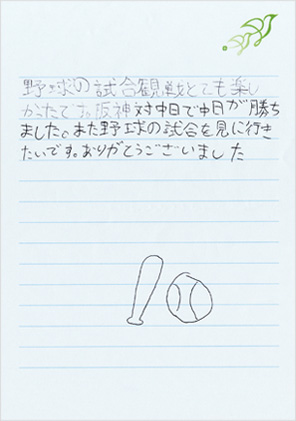 野球の試合観戦とても楽し
かったです。阪神対中日で中日が勝ち
ました。また野球の試合を見に行き
たいです。ありがとうございました